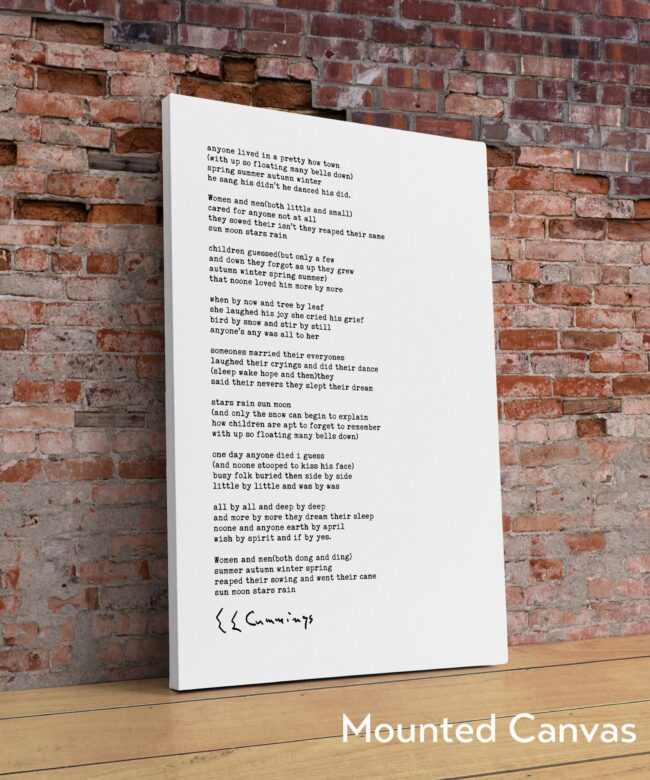 anyone lived in a pretty how town
(with up so floating many bells down)
spring summer autumn winter
he sang his didn't he danced his did.
Women and men(both little and small)
cared for anyone not at all
they sowed their isn't they reaped their same
sun moon stars rain
children guessed(but only a few
and down they forgot as up they grew
autumn winter spring summer)
that noone loved him more by more
when by now and tree by leaf
she laughed his joy she cried his grief
bird by snow and stir by still
anyone's any was all to her
someones married their everyones
laughed their cryings and did their dance
(sleep wake hope and then)they
said their nevers they slept their dream
stars rain sun moon
(and only the snow can begin to explain
how children are apt to forget to remember
with up so floating many bells down)
one day anyone died i guess
(and noone stooped to kiss his face)
busy folk buried them side by side
little by little and was by was
all by all and deep by deep
and more by more they dream their sleep
noone and anyone earth by april
wish by spirit and if by yes.
Women and men(both dong and ding)
summer autumn winter spring
reaped their sowing and went their came
sun moon stars rain
E E Cummings
Mounted Canvas